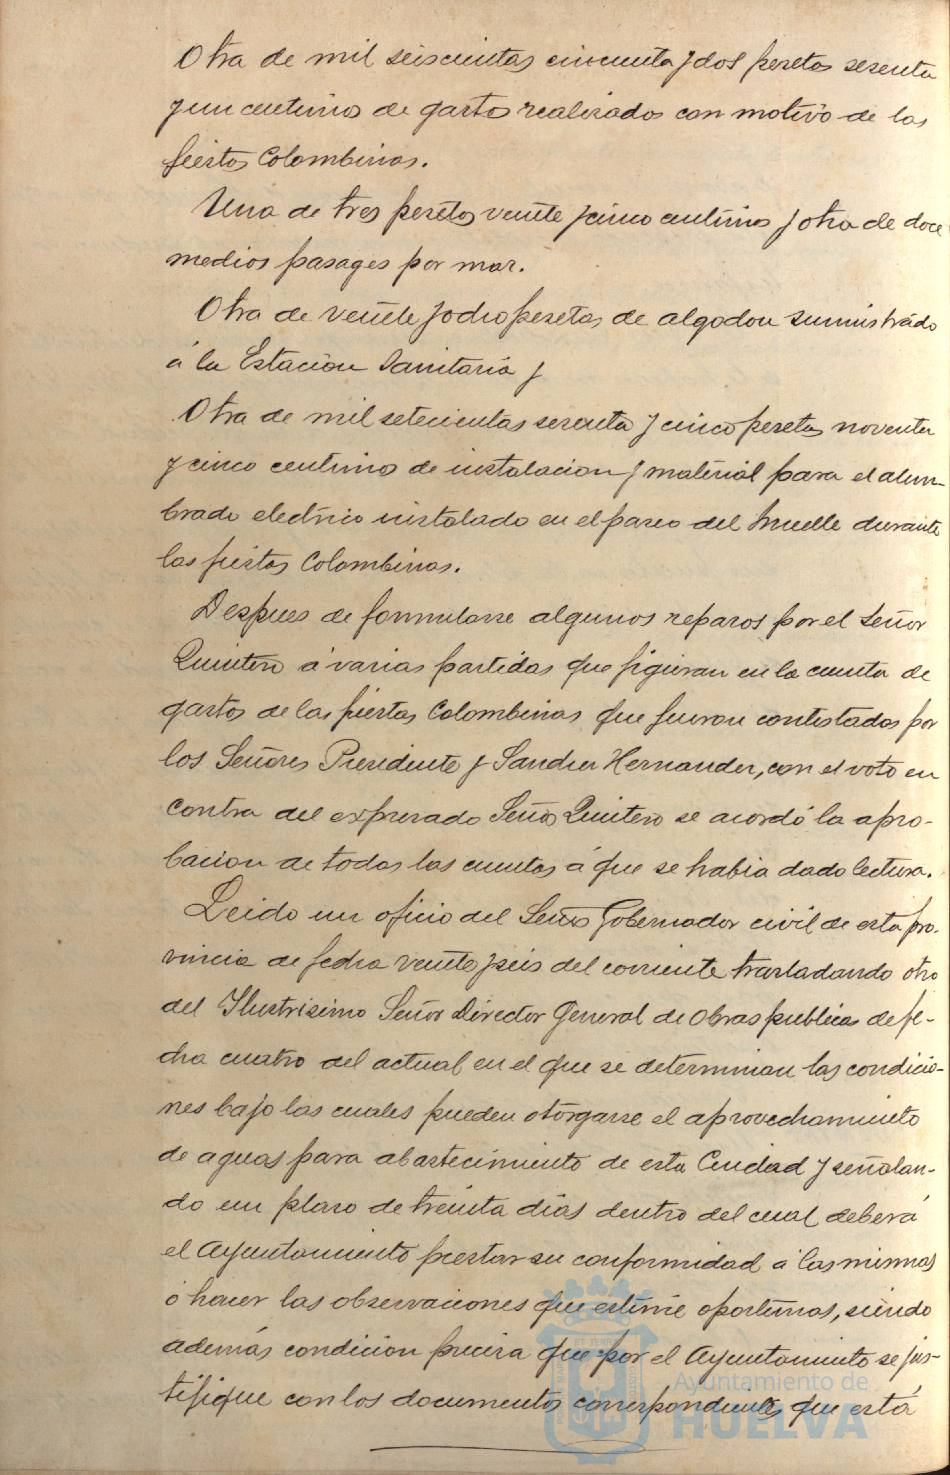 Otra de mil seiscientas cincuenta y dos pesetas sesenta
y un centimos de gastos realizados con motivo de las
fiestas Colombinas.
Una de tres pesetas veinte y cinco centimos y otra de doce
medios pasages por mar.
Otra de veinte y ocho pesetas de algodon suministrado
á la Estacion Sanitaria y
Otra de mil setecientas sesenta y cinco pesetas noventa
y cinco centimos de instalacion y material para el alum-
brado electrico instalado en el paseo del Muelle durante
las fiestas Colombinas.
Despues de formularse algunos reparos por el Señor
Quintero á varias partidas que figuran en la cuenta de
gastos de las fiestas Colombinas que fueron contestados por
los Señores Presidente y Sanchez Hernandez, con el voto en
contra del expresado Señor Quintero se acordó la apro-
bacion de todas las cuentas á que se habia dado lectura.
Leido un oficio del Señor Gobernador civil de esta pro-
vincia de fecha veinte y seis del corriente trasladando otro
del Ilustrisimo Señor Director General de Obras publicas de fe-
cha cuatro del actual en el que se determinan las condicio-
nes bajo las cuales pueden otorgarse el aprovechamiento
de aguas para abastecimiento de esta Ciudad y señalan-
do un plazo de treinta dias dentro del cual deberá
el Ayuntamiento prestar su conformidad á las mismas
ó hacer las observaciones que estime oportunas, siendo
además condicion precisa que por el Ayuntamiento se jus-
tifique con los documentos correspondientes que está
Ayuntamiento de
HUELVA